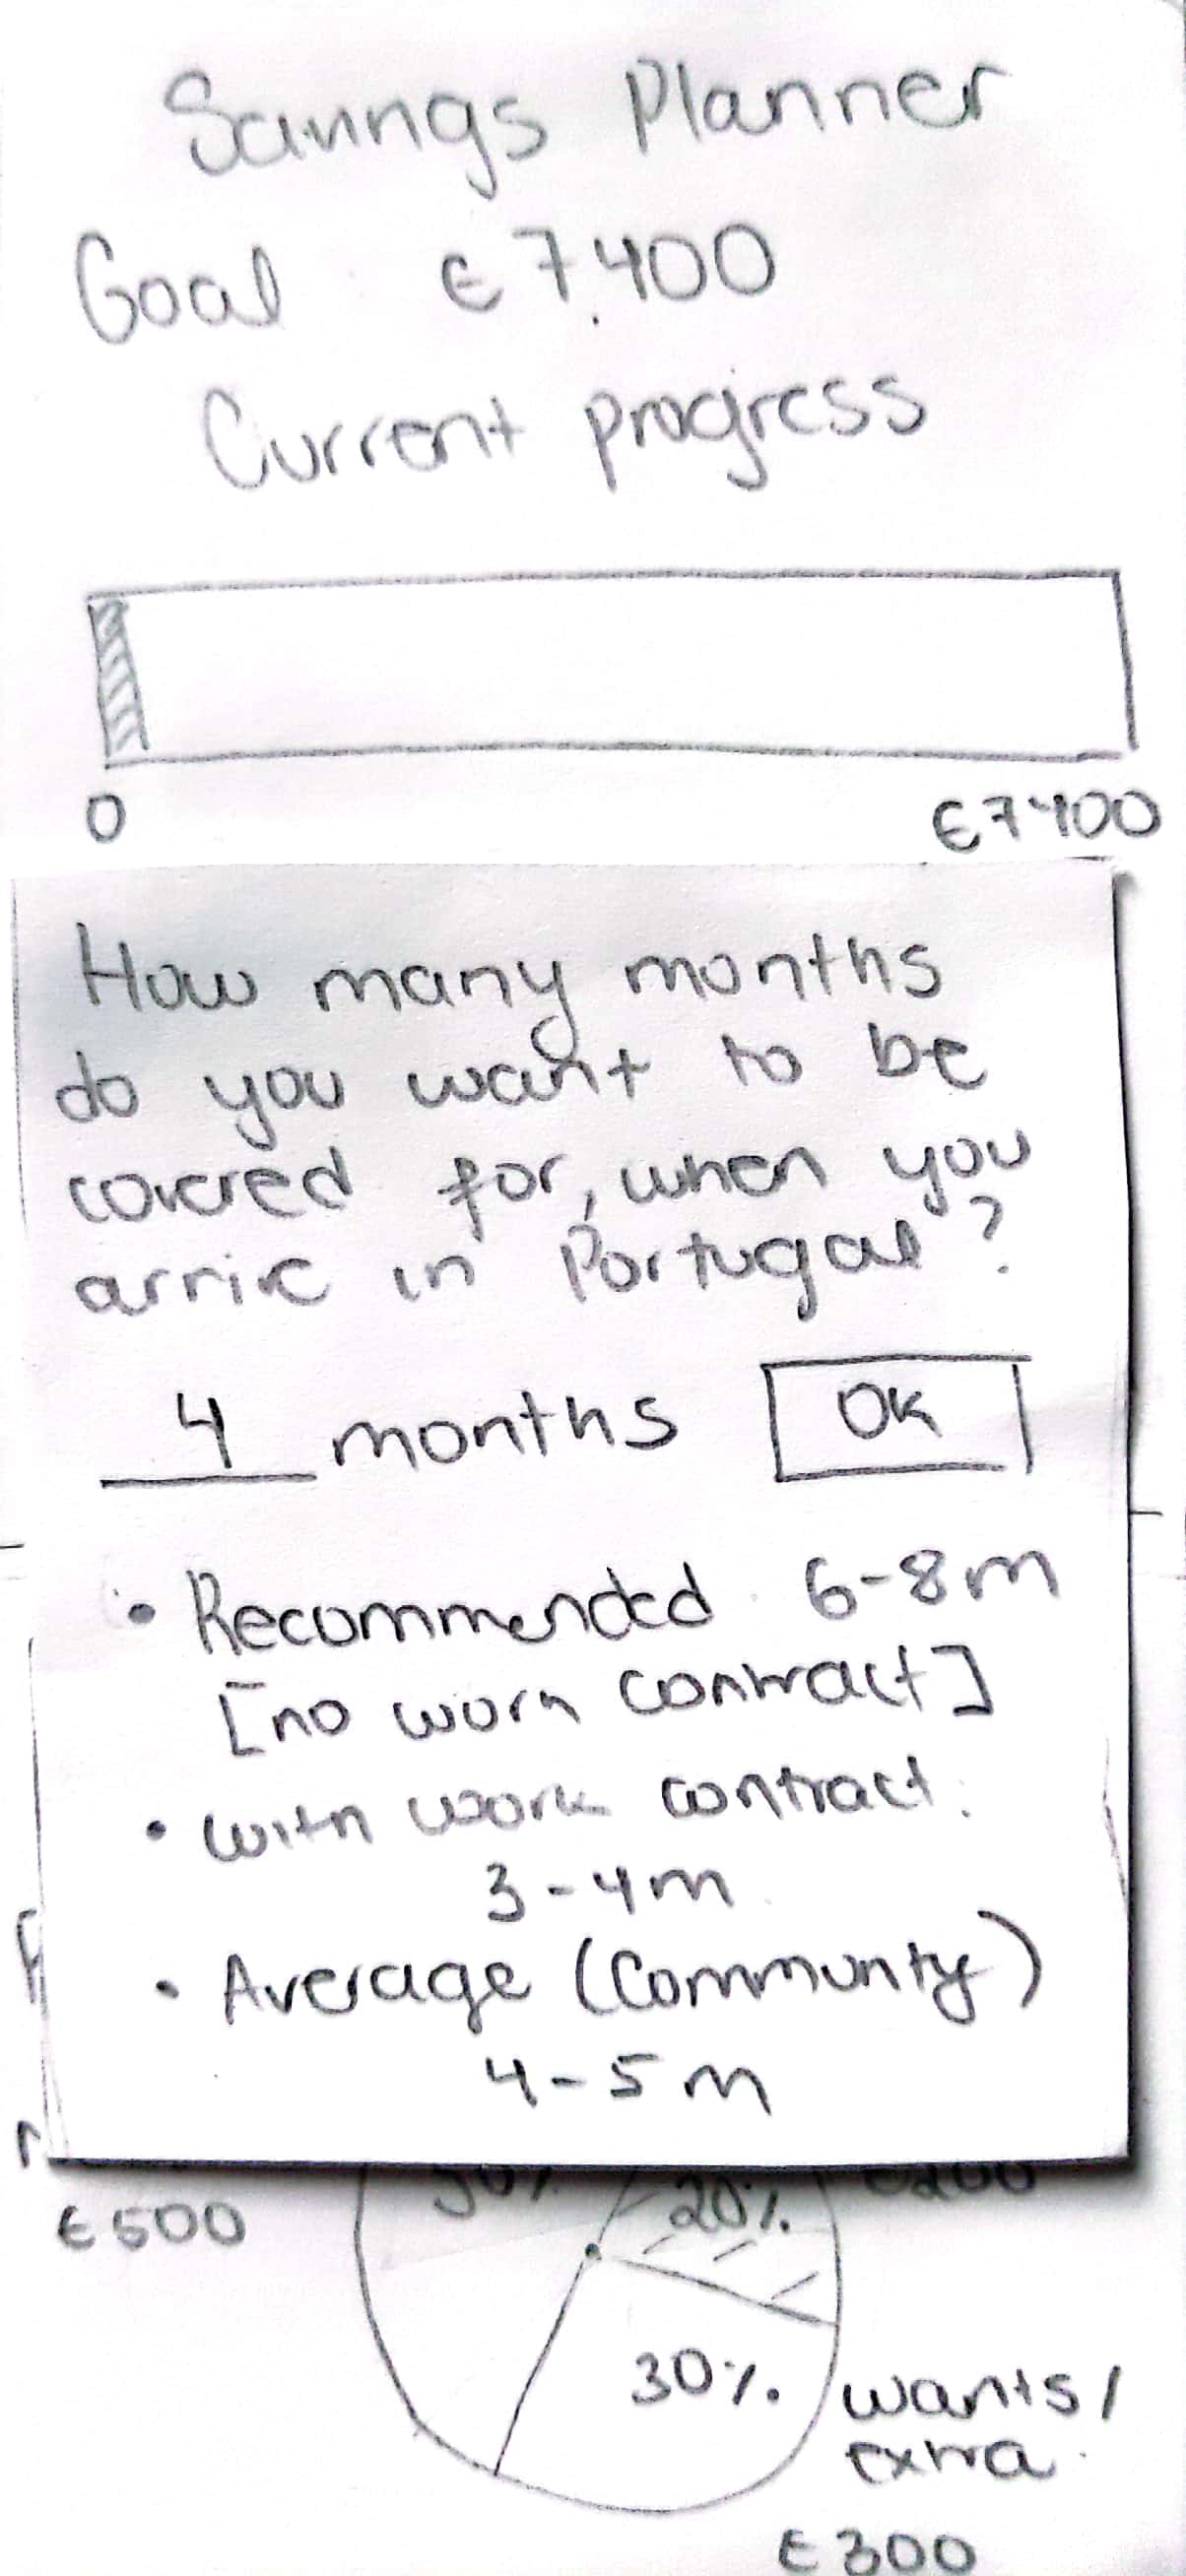 Savings Planner
Goal : € 7.400
Current progress
0 €7400
How many months
do you want to be
covered for, when you
arrive in Portugal?
4 months OK
• Recommended : 6-8m
[no work contract]
• with work contract:
3-4m
• Average (Community)
4-5m
€500 20%
30% wants/
extra
€300